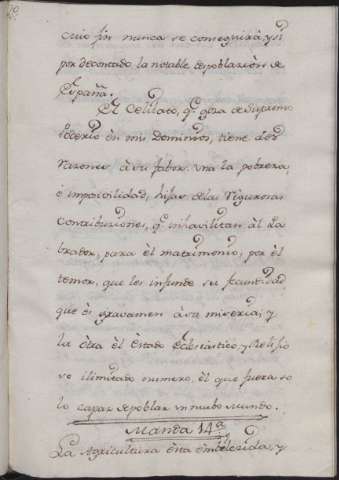 cuio fin nunca se conseguirá, y si
por decontado la notable despoblaciòn de
España.
El Celibato, qe goza de supremo
Poderio èn mis Dominios, tiene dos
Varones à su fabor. Una la pobreza,
è imposivilidad, hijas delas Rigurosas
contribuciones, qe inhavilitan àl La
brador, para èl matrimonio, por èl
temor, que les infunde su fecundidad,
que ès gravamen à su miseria; y
la òtra èl Estado Eclesiastico y Religio
so ilimitado numero, èl que fuera so
lo capaz de poblar un nuebo mundo.
Manda 14ª
La Agricultura ènta èmbilezida, y